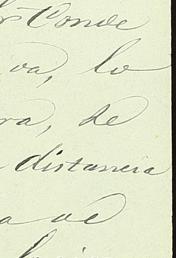 Conde
va, lo
ra, de
distancia
a de